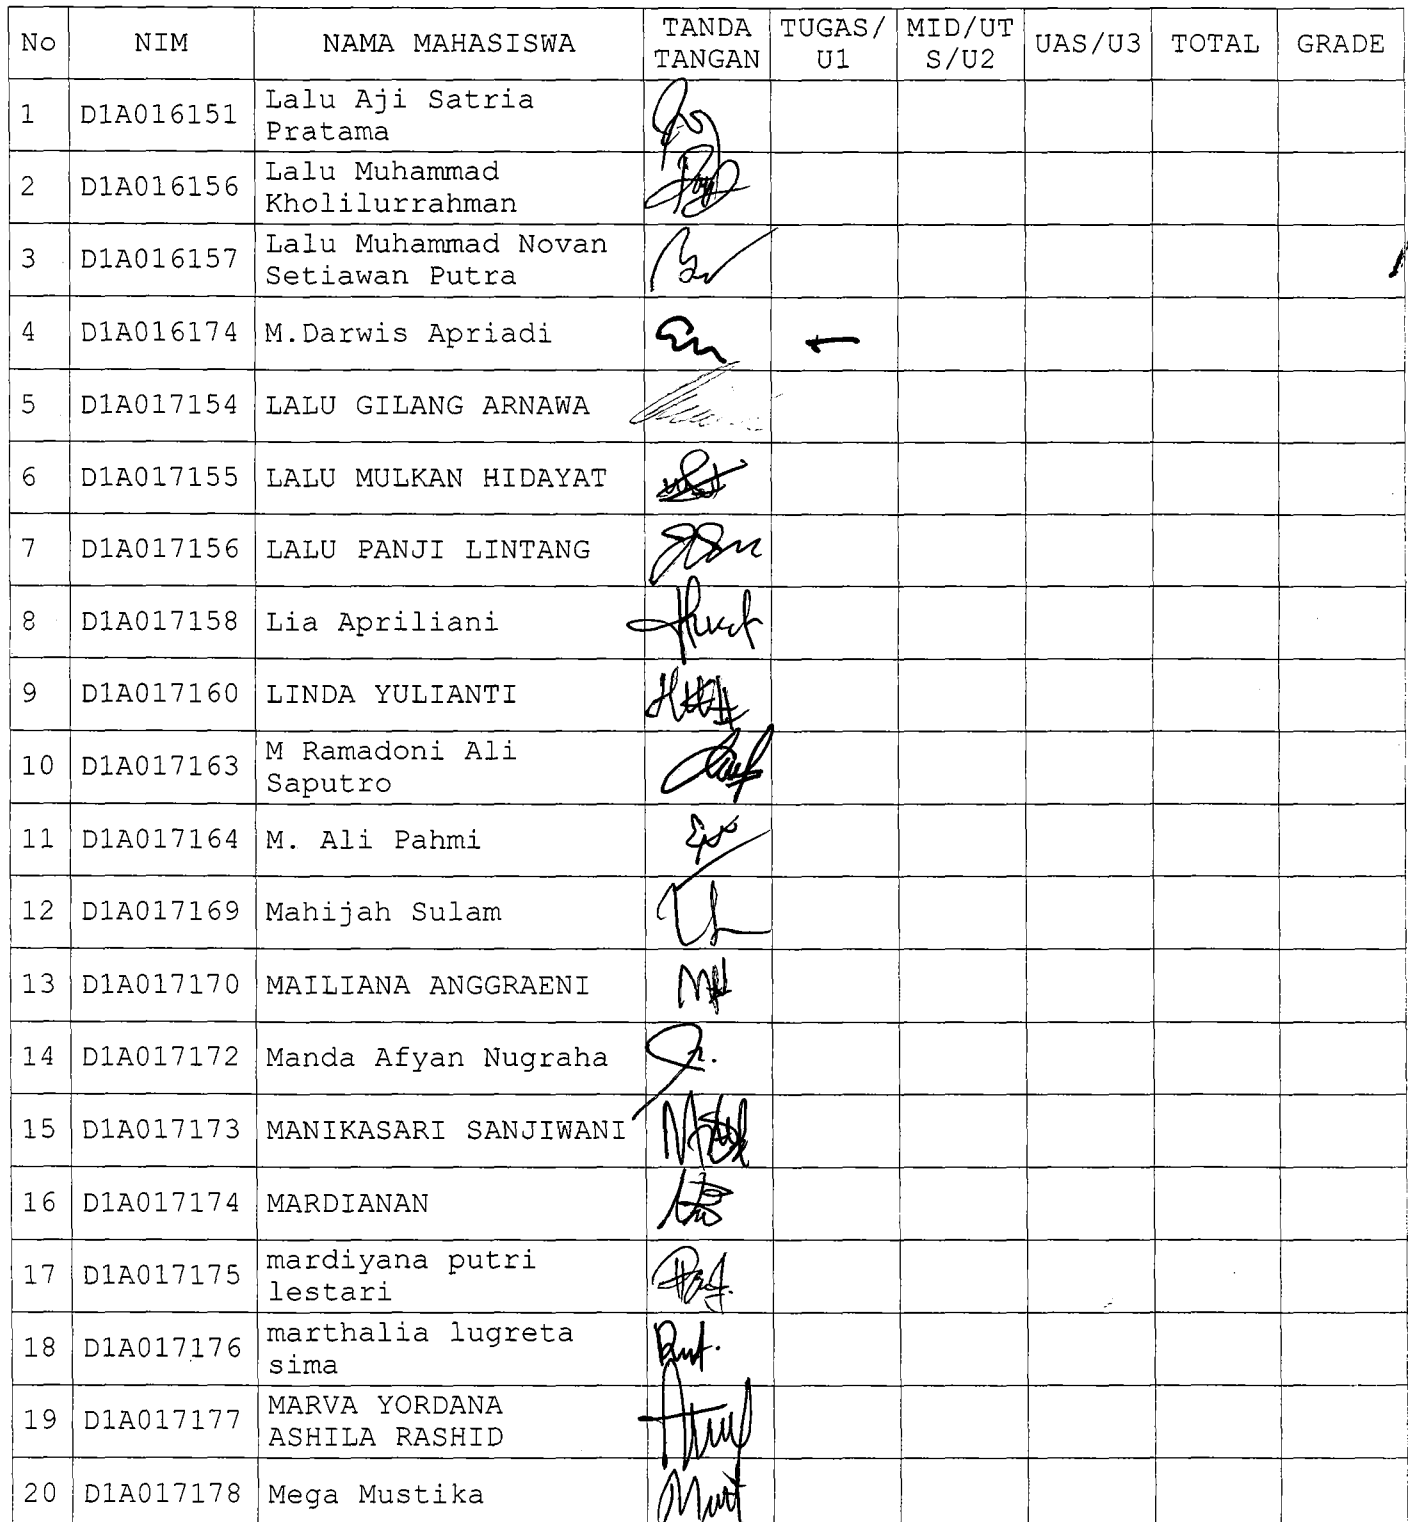 No NIM NAMA MAHASISWA TANDA TANGAN TUGAS/ U1 MID/UT S/U2 UAS/U3 TOTAL GRADE
1 D1A016151 Lalu Aji Satria
Pratama
2 D1A016156 Lalu Muhammad
Kholilurrahman
3 D1A016157 Lalu Muhammad Novan
Setiawan Putra
4 D1A016174 M.Darwis Apriadi
5 D1A017154 LALU GILANG ARNAWA
6 D1A017155 LALU MULKAN HIDAYAT
7 D1A017156 LALU PANJI LINTANG
8 D1A017158 Lia Apriliani
9 D1A017160 LINDA YULIANTI
10 D1A017163 M Ramadoni Ali
Saputro
11 D1A017164 M. Ali Pahmi
12 D1A017169 Mahijah Sulam
13 D1A017170 MAILIANA ANGGRAENI
14 D1A017172 Manda Afyan Nugraha
15 D1A017173 MANIKASARI SANJIWANI
16 D1A017174 MARDIANAN
17 D1A017175 mardiyana putri
lestari
18 D1A017176 marthalia lugreta
sima
19 D1A017177 MARVA YORDANA
ASHILA RASHID
20 D1A017178 Mega Mustika